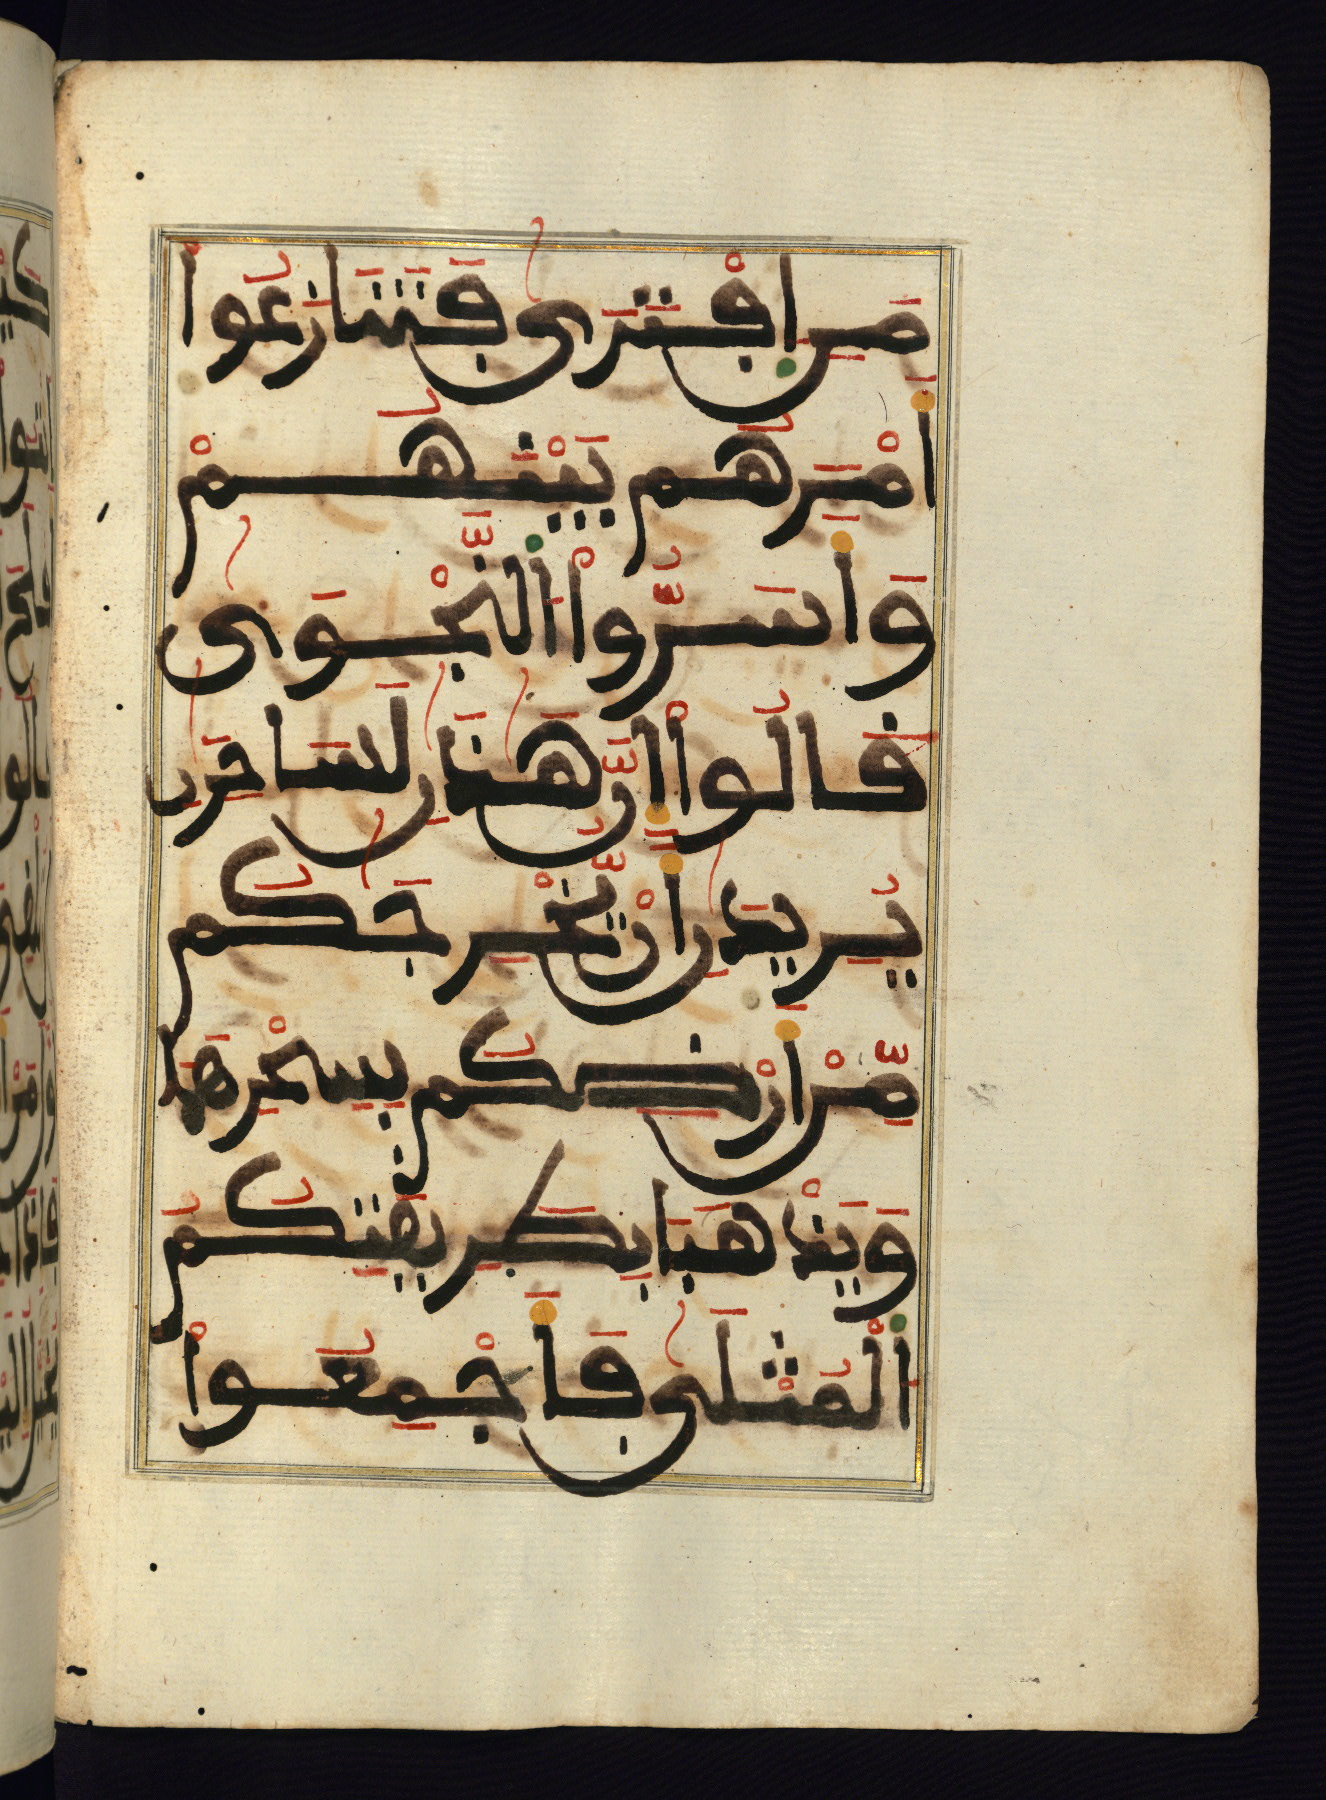 مَنِ اِفْتَرَىٰ فَتَنَازَعُواْ
أَمْرَهُم بَيْنَهُمْ
وَأَسَرُّواْ اُلنَّجْوَىٰ
قَالُواْ إِنَّ هَٰذَٰنِ لَسَٰحِرَٰنِ
يُرِيدَٰنِ أَنْ يُّخْرِجَٰكُم
مِّنْ أَرْضِكُم بِسِحْرِهِمَا
وَيَذْهَبَا بِطَرِيقَتِكُمُ
اُلْمُثْلَىٰ فَأَجْمِعُواْ